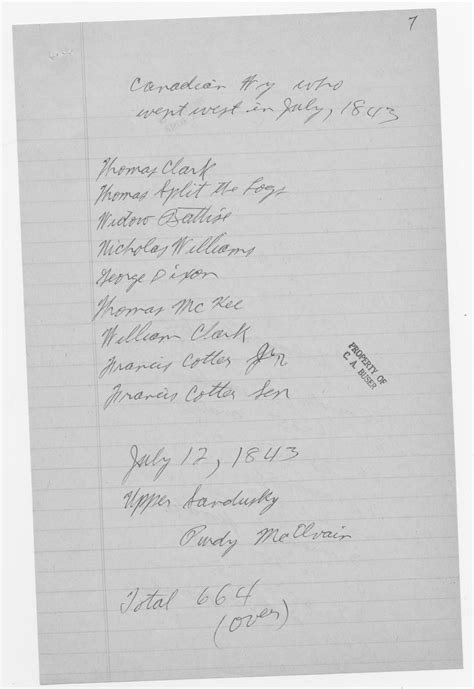 7
Canadian Wy who
went west in July, 1843
Thomas Clark
Thomas Split the Logs
Widow Battise
Nicholas Williams
George Dixon
Thomas McKee
William Clark
Francis Cotter Jr
Francis Cotter Sen
PROPERTY OF
C. A. BUSER
July 12, 1843
Upper Sandusky
Purdy McElvain
Total 664
(over)